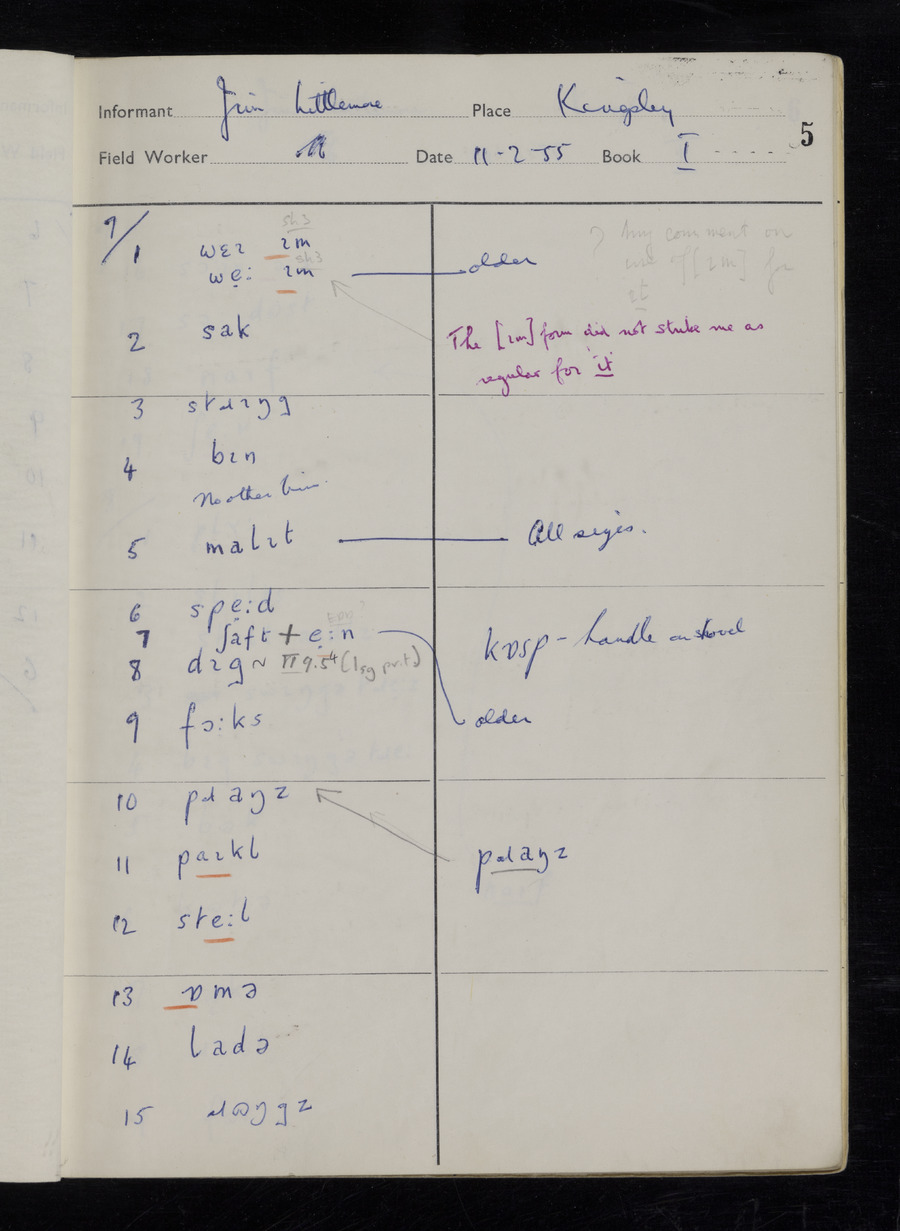 Informant Jim Littlemore Place Kingsley
5
Field Worker Date 11-2-55 Book I
sh3
7/1 wɛɪ ɪm
sh3
we̞: ɪm older
? Any comment on
use of [ɪm] for
it
2 sak
The [ɪm] form did not strike me as
regular for "it"
3 stɹɪŋg
4 bɪn
No other bin.
5 malɪt All sizes.
6 spe̞:d
EDD?
7 ʃaft + e̞:n
kɒsp - handle on shovel
8 dɪg ~ IV 9.54 (1sg pr.t.)
9 fɔ:ks older
10 pɹaŋz
11 paɪkl pɹaŋz
12 ste:l
13 ɒmə
14 ladə
15 ɹɷŋgz